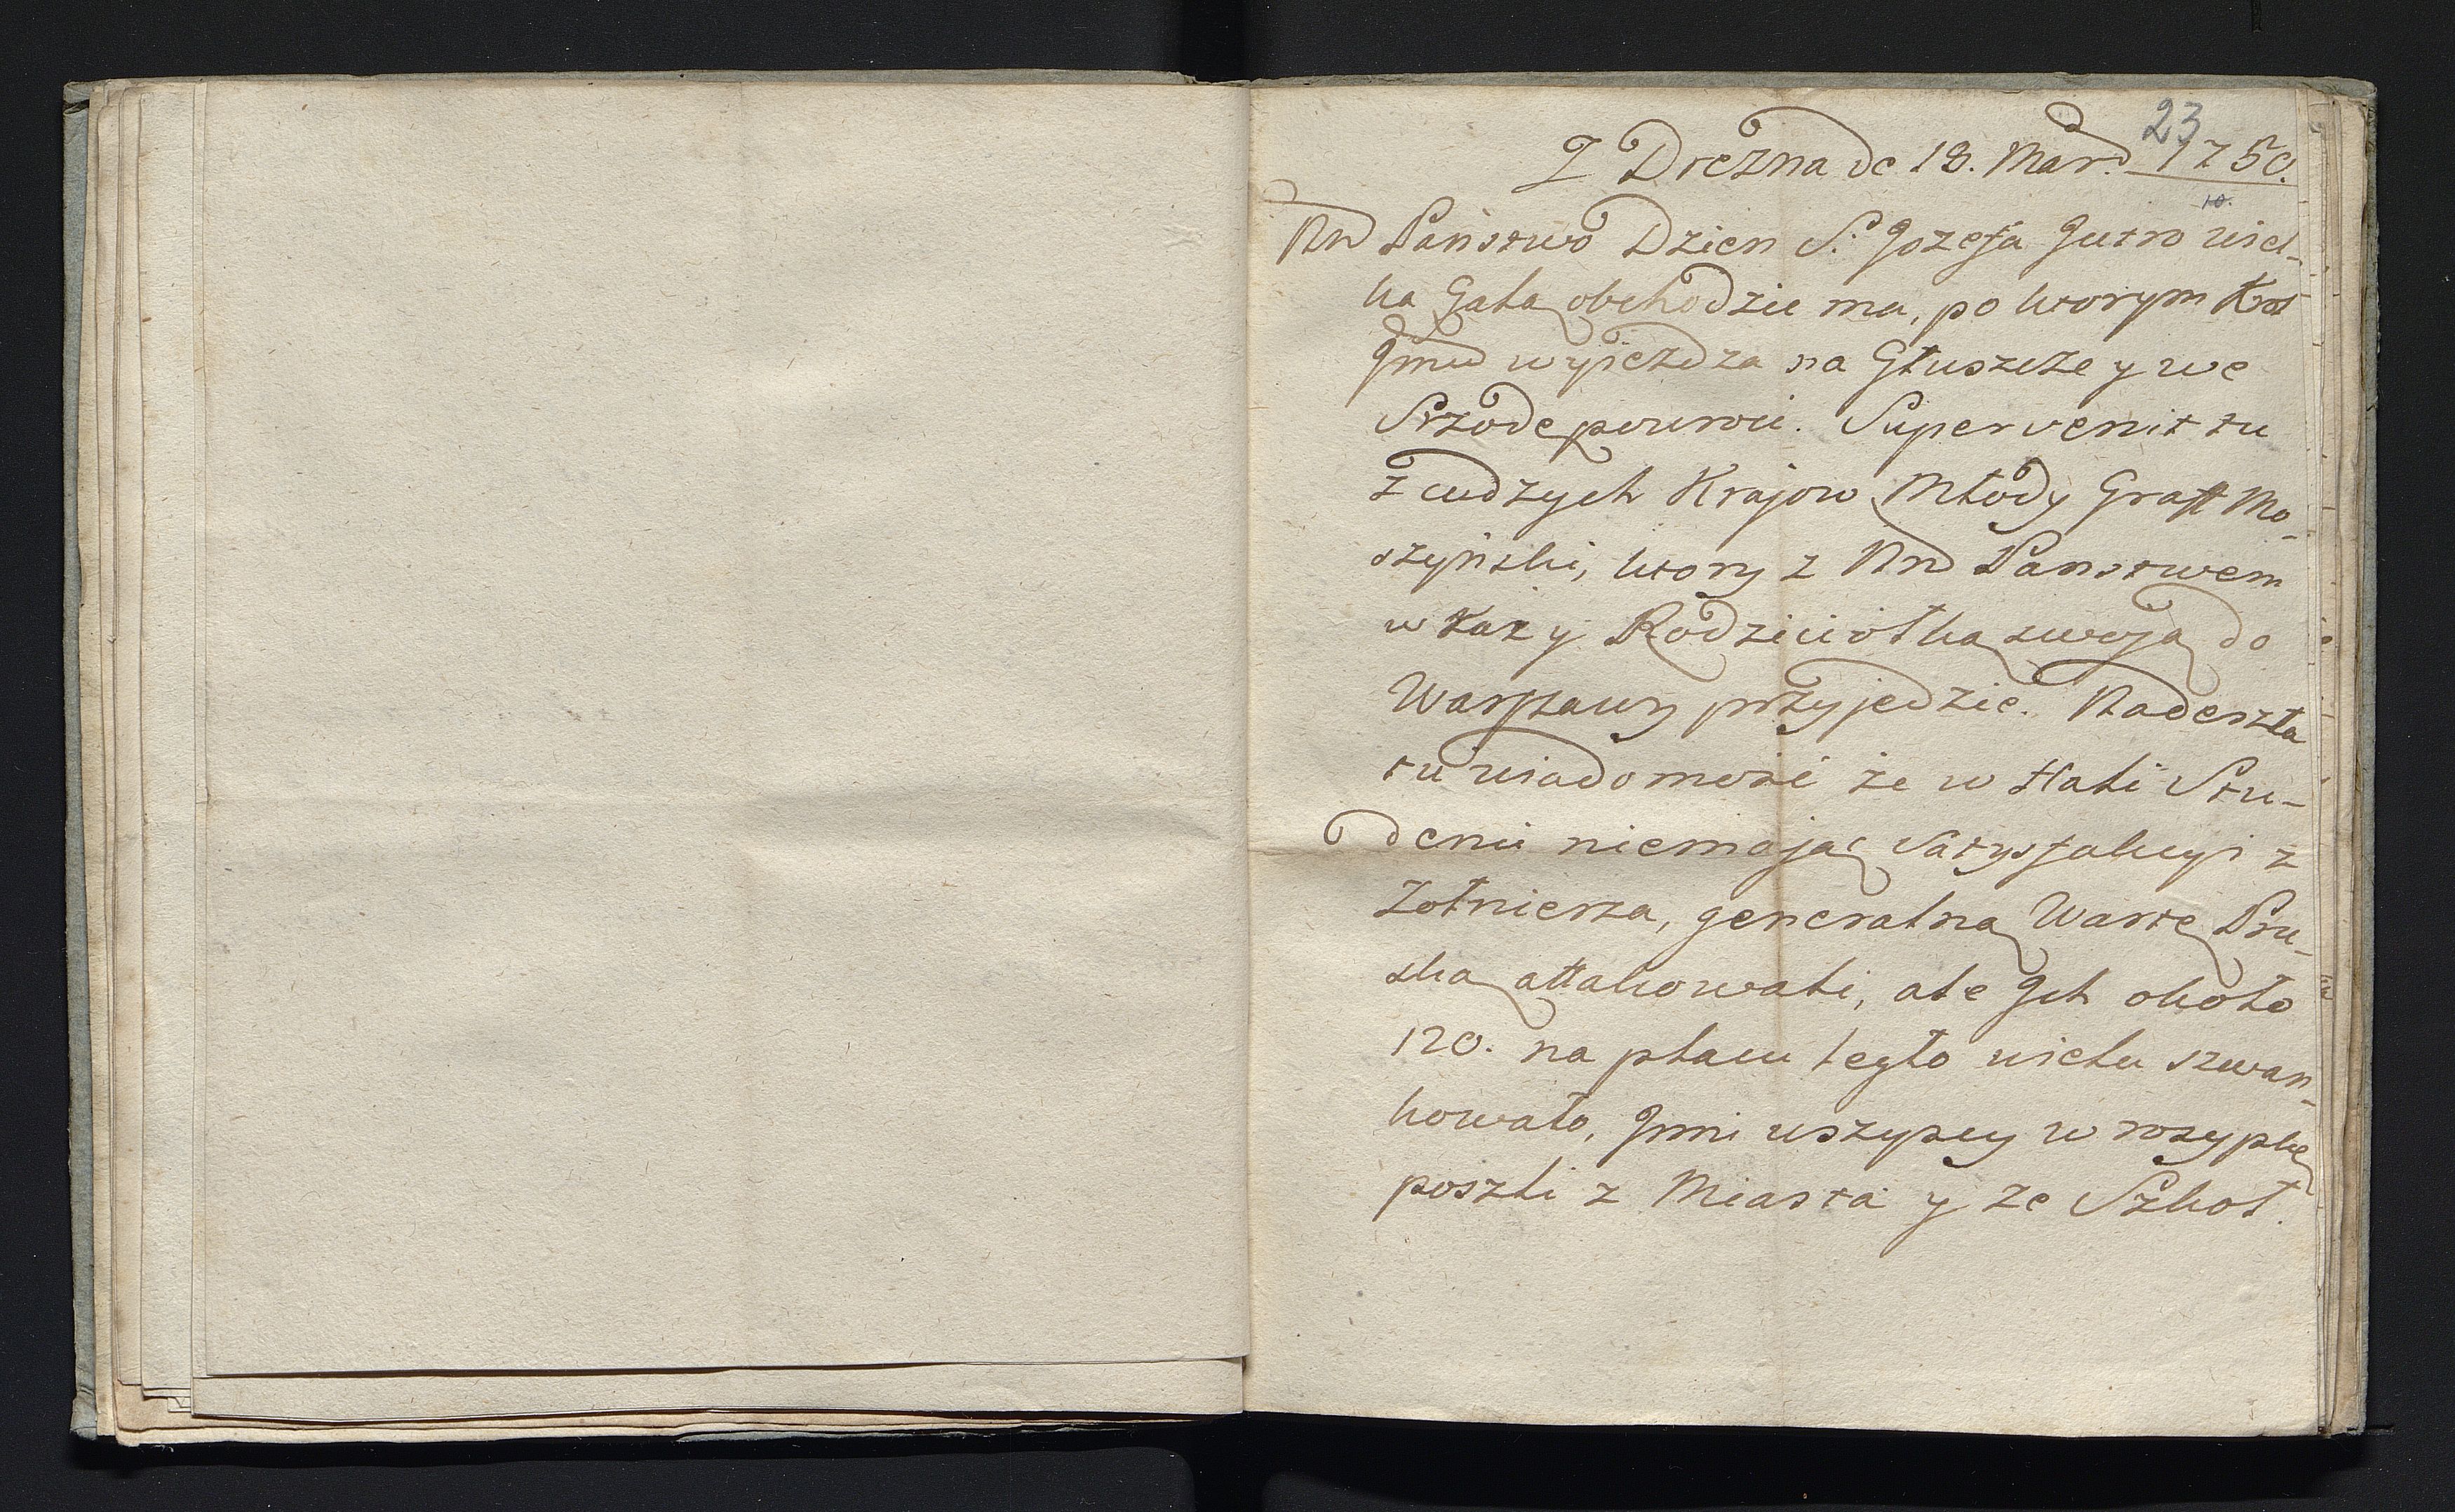 23
Z Drezna de 18. Mar: 1750.
10.
NN Państwo Dzien S. Jozefa Jutro wiel-
ką Galą obchodzic ma, po ktorym Krol
Jmc wyiezdza na Głuszcze y we
Srzodę powroci. Supervenit tu
z cudzych Krajow Młody Graff Mo-
szyński, ktory z NN Panstwem
w raz y Rodzicielką swoją do
Warszawy przyjedzie. Nadeszła
tu wiadomosc że w Hali Stu-
denci niemając Satysfakcyi z
Zołnierza, generalną Wartę Pru-
ską attakowali, ale Jch około
120. na placu legło wielu szwan-
kowało, Jnni wszyscy w rozypkę
poszli z Miasta y ze Szkoł.